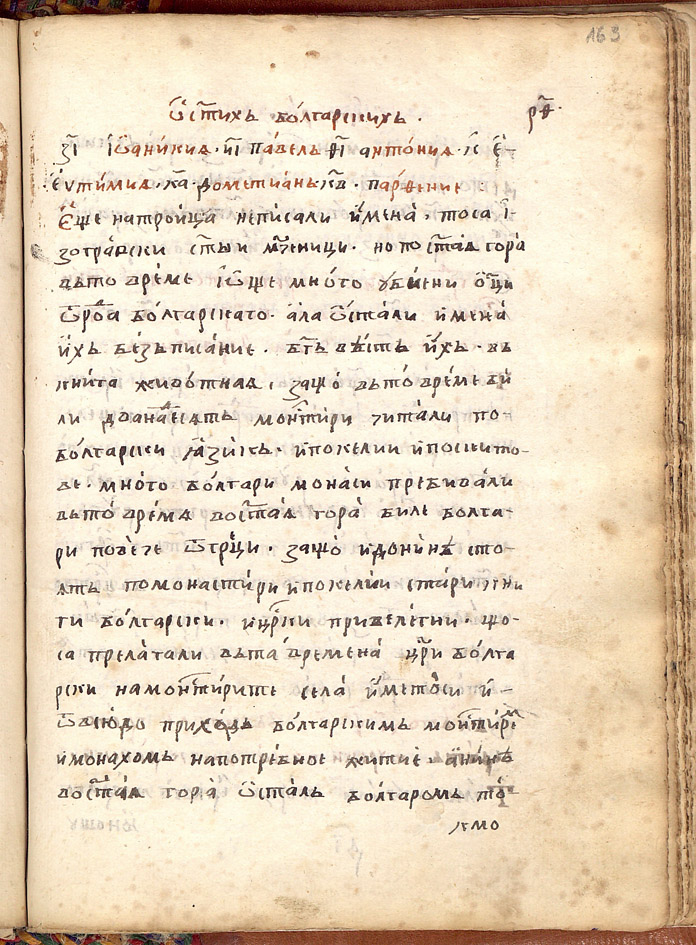 163
Ѿ ст҃ихь бо́лгарскихь . рѳ҃.
з҃і іѡани́киѧ · и҃і па́вель ѳ҃і анто́ниѧ · к҃ е-
ѵти́миѧ · к҃а · дометиань к҃в · парѳение
Еще на трои́ца неписали и́мена̀ · тоса і-
зогра́вски ст҃ы и мч҃еници · но по ст҃аѧ гора
въ то вре́ме іѡще мно́го убиени ѻц҃и
ѿ рода бо́лгарскаго · ала ѡста́ли и́мена
и́хь безъ писа́ние · бг҃ь вѣсть и́хь · въ
книга живо́тнаѧ , защо̀ въ то́ вре́ме би́
ли дванадесѧть монⷭти́ри читали по-
бо́лгарски ꙗзи́кь · и по келии и по скито-
ве · мно́го бо́лгари мона́си пребива́ли
въ то вре́мѧ во ст҃аѧ гора̀ биле болга-
ри по вече ѿ гре́ци · защо̀ и до нинѣ сто-
ѧть по монасти́ри и по келии ста́ри кни
ги бо́лгарски · и црⷭки привеле́гии · що-
са прелагали въ та времена̀ цр҃и бо́лга
рски на монⷭти́рите села̀ и́мето́си и́-
ѿ всюдо прихо́дь бо́лгарскимь монⷭти́рем
и монахомь на потре́бное житие · а ни́нѣ
во ст҃аѧ гора̀ ѡста́ль бо́лгаромь то́-
кмо